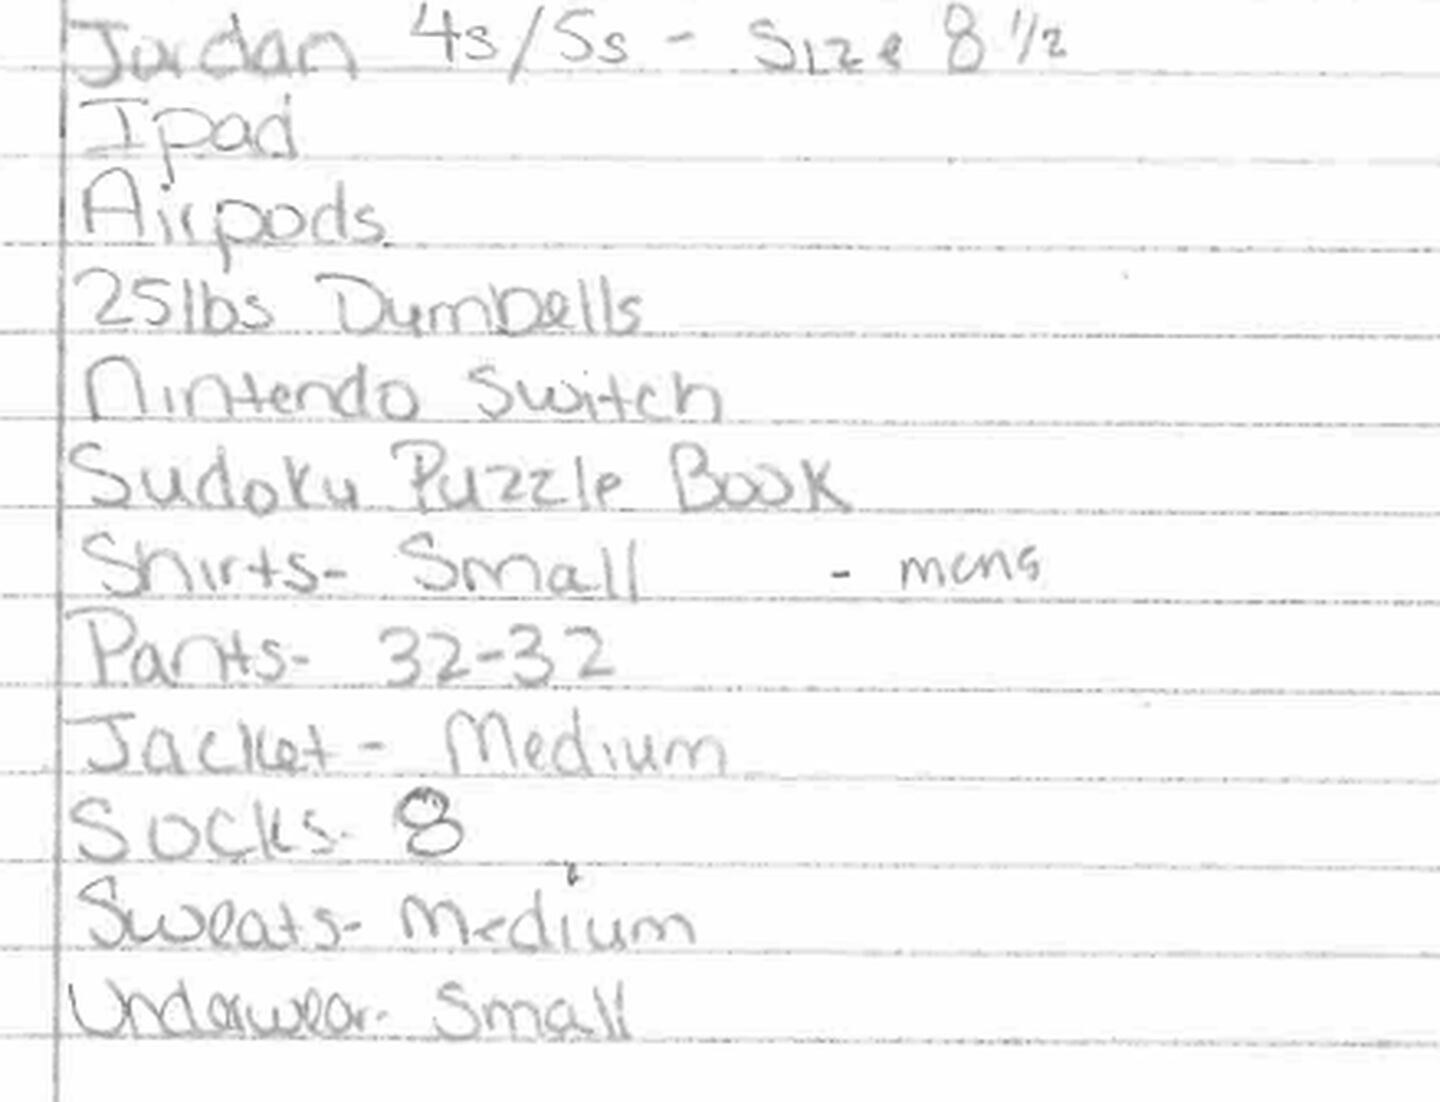 Jordan 4s/5s - Size 8 1/2
Ipad
Airpods
25lbs Dumbells
Nintendo Switch
Sudoku Puzzle Book
Shirts- Small - mens
Pants- 32-32
Jacket - Medium
Socks- 8
Sweats- Medium
Underwear- Small